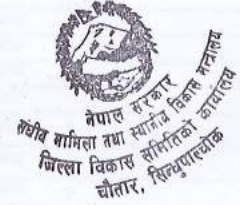 नेपाल सरकार
संघीय मामिला तथा स्थानीय विकास मन्त्रालय
जिल्ला विकास समितिको कार्यालय
चौतारा, सिन्धुपाल्चोक